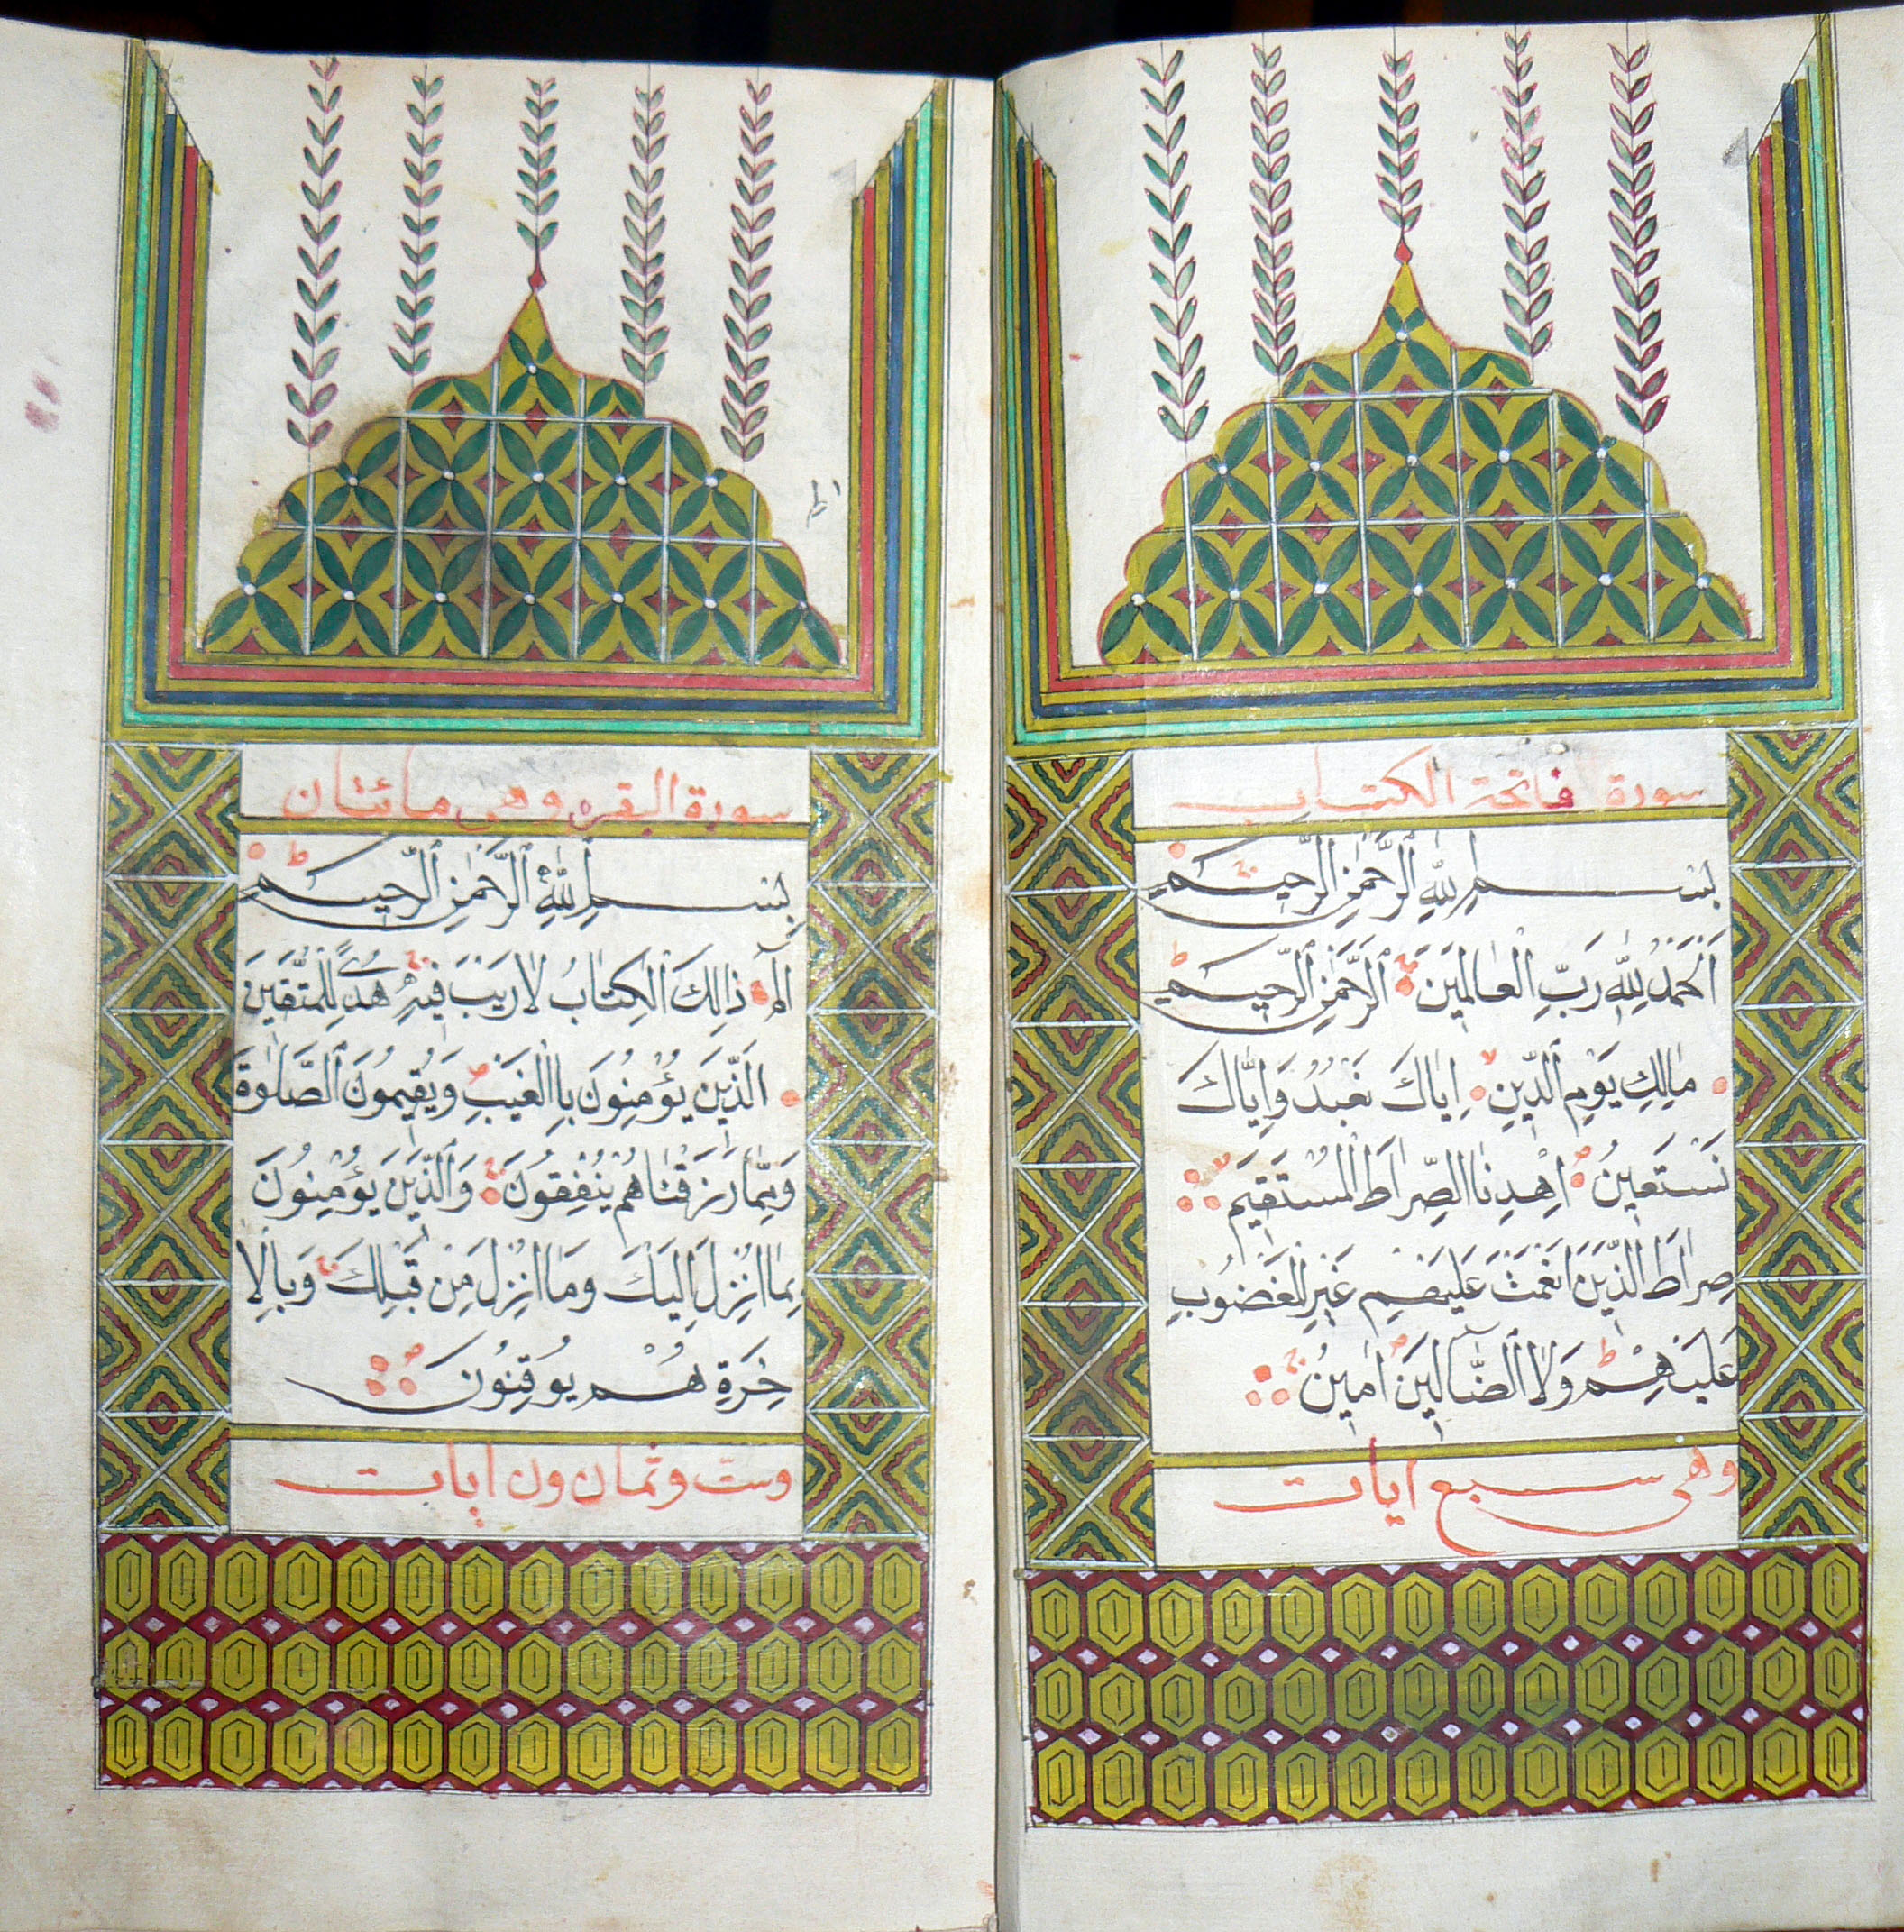 سورة فاتحة الكتاب
بِسْمِ اللّٰهِ الرَّحْمٰنِ الرَّحِيمِ
اَلْحَمْدُ لِلّٰهِ رَبِّ الْعَالَمِينَ الرَّحْمٰنِ الرَّحِيمِ
مَالِكِ يَوْمِ الدِّينِ اِيَّاكَ نَعْبُدُ وَاِيَّاكَ
نَسْتَعِينُ اِهْدِنَا الصِّرَاطَ الْمُسْتَقِيمَ
صِرَاطَ الَّذِينَ اَنْعَمْتَ عَلَيْهِمْ غَيْرِ الْمَغْضُوبِ
عَلَيْهِمْ وَلَا الضَّالِّينَ اٰمِينُ
وهى سبع ايات
سورة البقرة وهى مائتان
بِسْمِ اللّٰهِ الرَّحْمٰنِ الرَّحِيمِ
الم ذَالِكَ الْكِتَابُ لَا رَيْبَ فِيهِ هُدًى لِلْمُتَّقِينَ
الَّذِينَ يُؤْمِنُونَ بِالْغَيْبِ وَيُقِيمُونَ الصَّلٰوةَ
وَمِمَّا رَزَقْنَاهُمْ يُنْفِقُونَ وَالَّذِينَ يُؤْمِنُونَ
بِمَا اُنْزِلَ اِلَيْكَ وَمَا اُنْزِلَ مِنْ قَبْلِكَ وَبِالْاٰ
خِرَةِ هُمْ يُوقِنُونَ
وست وثمانون ايات